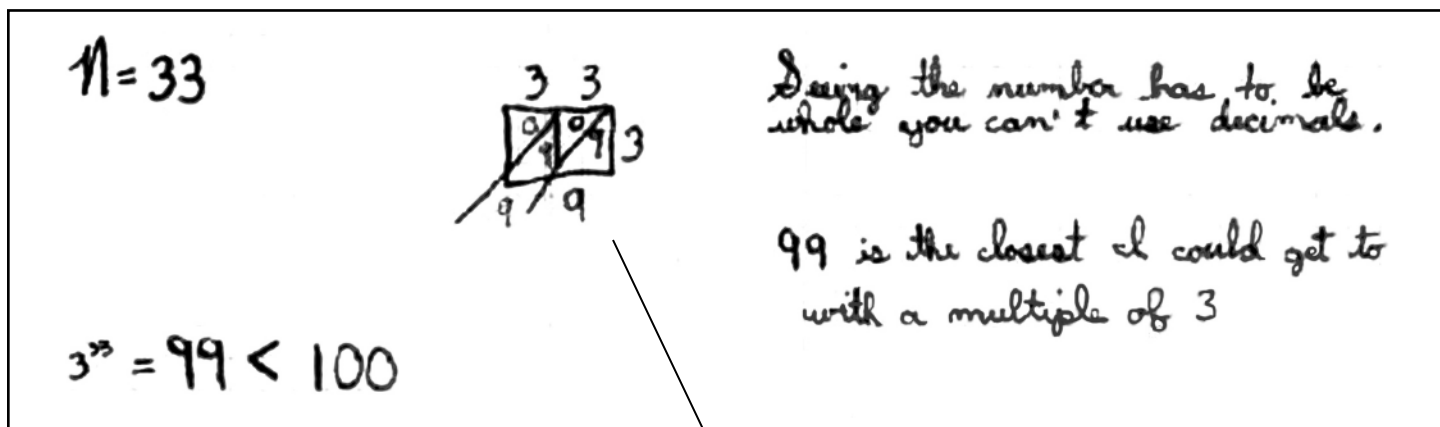 n = 33
3 3
0 0
9 9 3
9 9
3³³ = 99 < 100
Seeing the number has to be
whole you can't use decimals.
99 is the closest I could get to
with a multiple of 3